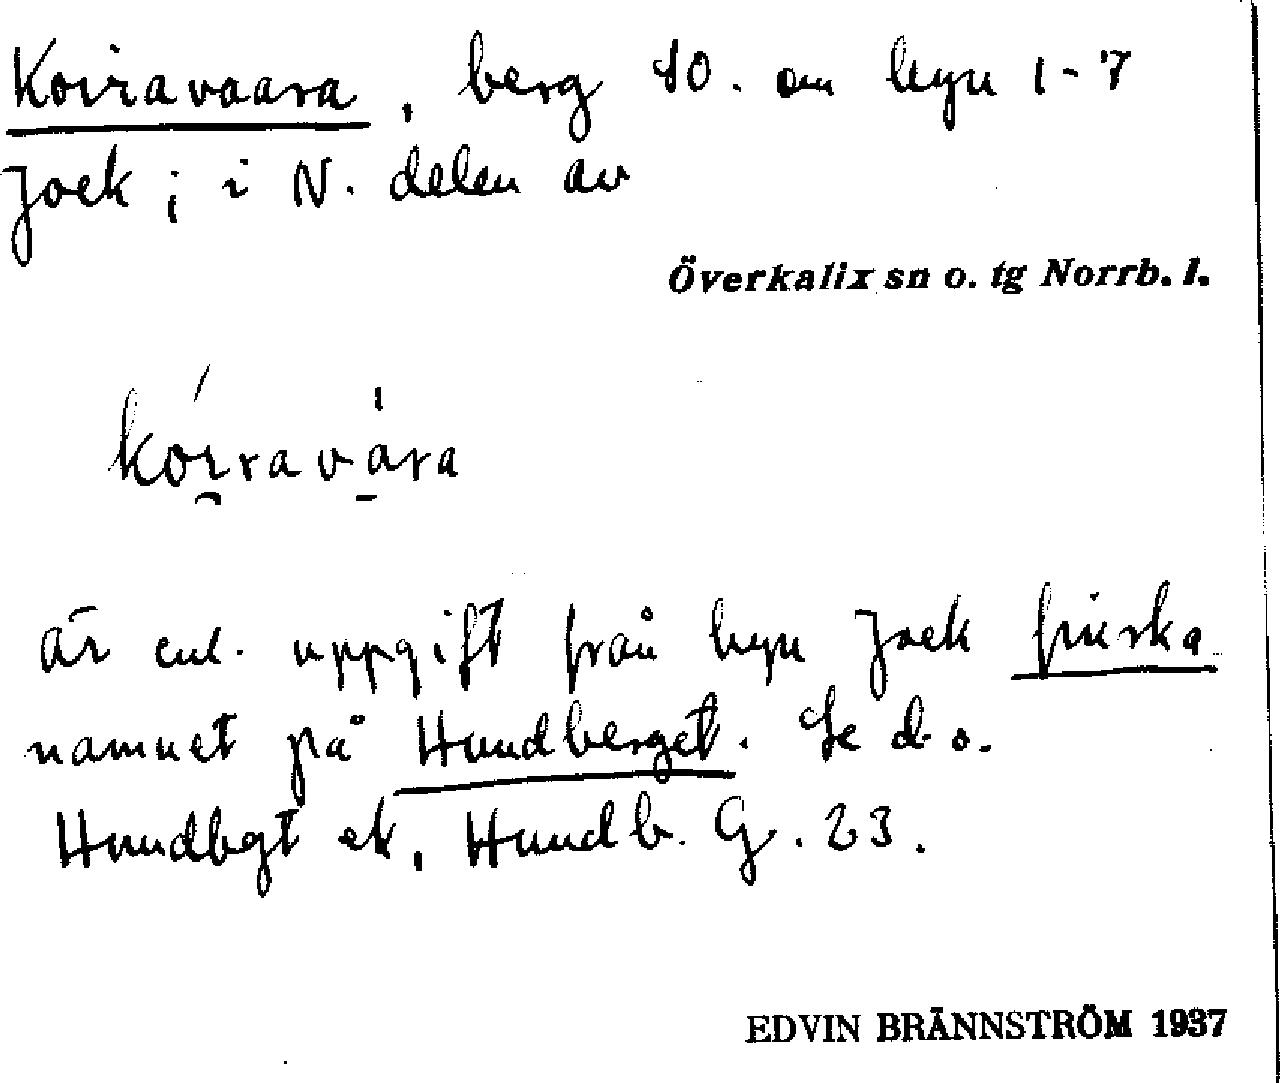 Koiravaara, berg SO. om byn 1-7
Jock; i N. delen av
Överkalix sn o. tg Norrb. l.
kói̯ravàra
är enl. uppgift från byn Jock finska
namnet på Hundberget. Se d. o.
Hundbgt ek, Hundb. G. 23.
EDVIN BRÄNNSTRÖM 1937